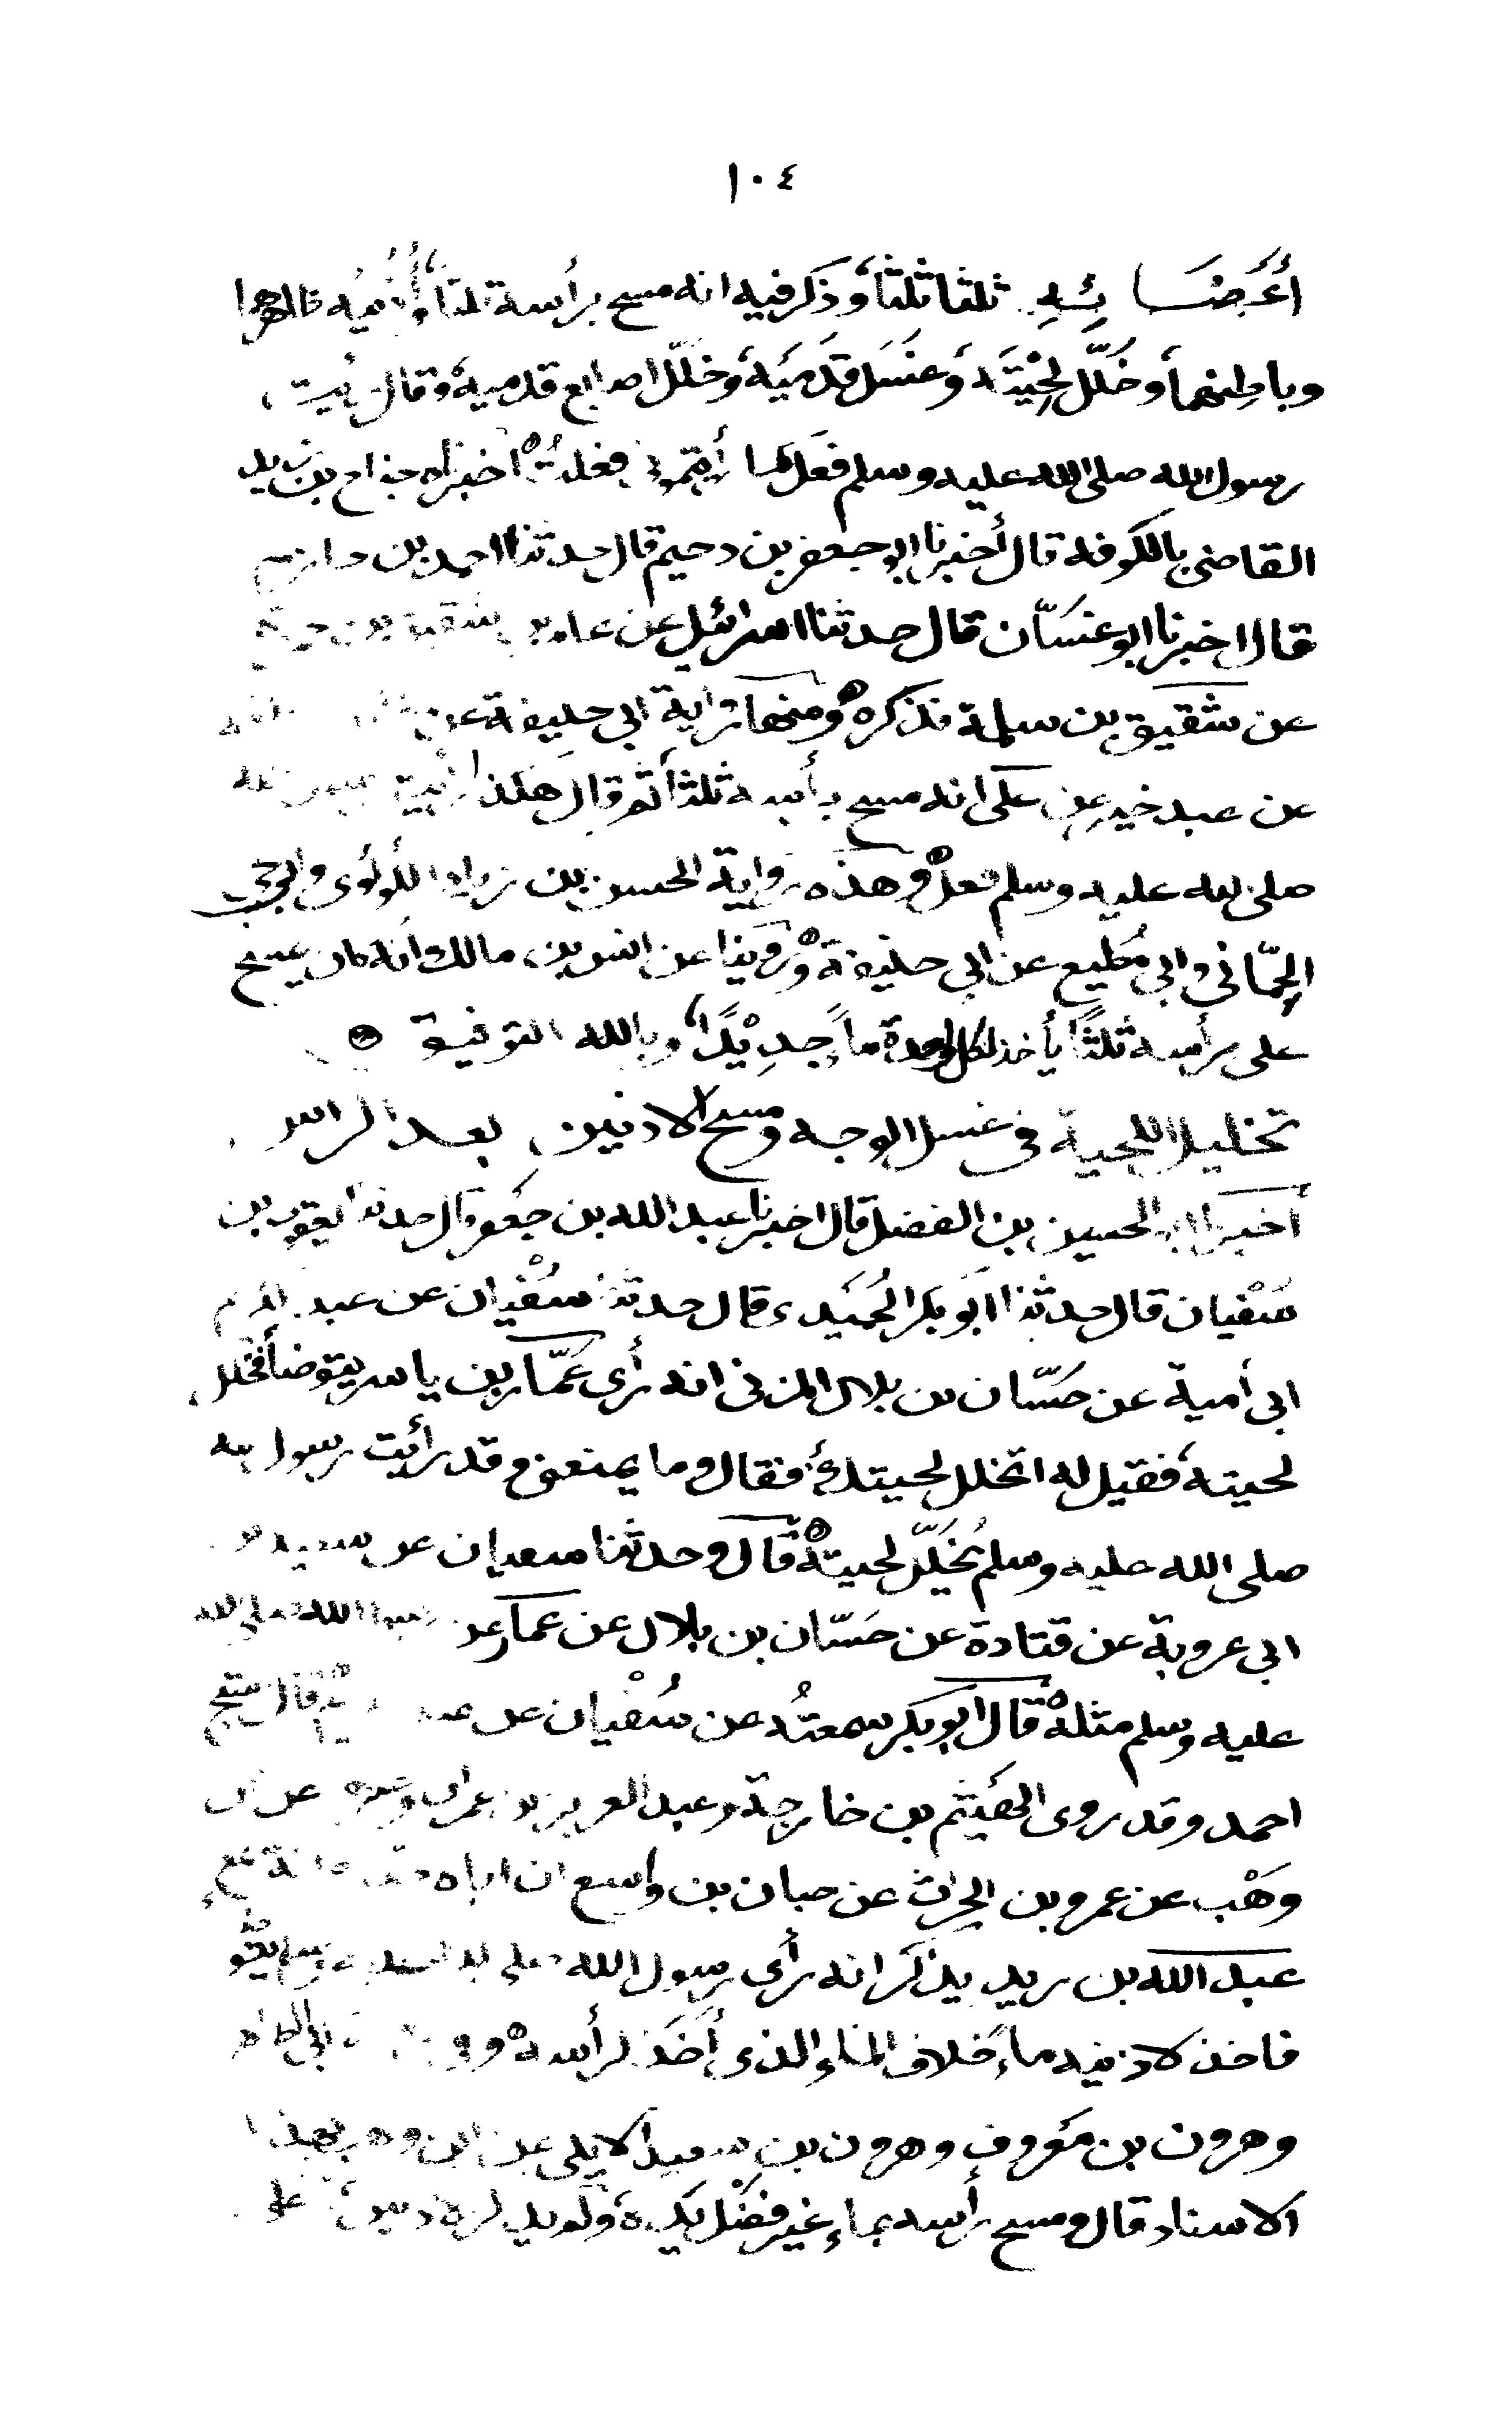 ١٠٤
أَعْضَائِهِ ثلثا ثلثا وذكر فيه انه مسح برأسه ثلثا وأذنيه ظاهرهما
وباطنهما وخَلَّلَ لِحْيَتَه وغَسَل قَدَمَيْه وخلّل اصابع قدميه وقال رأيت
رسول الله صلى الله عليه وسلم فَعَل كما رأيتموني فعلتُ اخبرناه جناح بن نذير
القاضي بالكوفة قال أخبرنا ابو جعفر بن دحيم قال حدثنا احمد بن حازم
قال اخبرنا ابو غسّان قال حدثنا اسرائيل عن عامر بن شقيق بن
عن شقيق بن سلمة فذكره ومنها رواية ابي حنيفة عن
عن عبد خير عن علي انه مسح برأسه ثلثا ثم قال هكذا رأيت
صلى الله عليه وسلم فعل وهذه رواية الحسن بن زياد اللؤلؤي وابي يحيى
الحِمّاني وابي مُطيع عن ابي حنيفة ورُوينا عن انس بن مالك انه كان يمسح
على رأسه ثلثًا يأخذ لكل واحدة ماءً جديدًا وبالله التوفيق
تخليل اللحية في غسل الوجه ومسح الاذنين بعد الراس
أخبرنا ابو الحسين بن الفضل قال اخبرنا عبد الله بن جعفر قال حدثنا يعقوب بن
سُفْيان قال حدثنا ابو بكر الحُمَيدي قال حدثنا سُفْيان عن عبد الكريم
ابي أمية عن حَسّان بن بلال المزني انه رأى عَمّار بن ياسر يتوضأ فخلل
لحيته فقيل له اتخلل لحيتك فقال وما يمنعني وقد رأيت رسول الله
صلى الله عليه وسلم يُخَلّل لحيته قال وحدثنا سفيان عن سعيد بن
ابي عروبة عن قتادة عن حَسّان بن بلال عن عمار عن رسول الله صلى الله
عليه وسلم مثله قال ابو بكر سمعتُه من سُفْيان عن
احمد وقد روى الهَيْثم بن خارجة وعبد العزيز بن عمران وغيره عن ابن
وَهْب عن عمرو بن الحرث عن حبان بن واسع ان اباه حدثه انه سمع
عبد الله بن زيد يذكر انه رأى رسول الله صلى الله عليه وسلم يتوضأ
فاخذ لاذنيه ماءً خلاف الماء الذي أخَذ لرأسه وروي عن ابي الطاهر
وهرون بن مَعْروف وهرون بن سعيد الايلي عن ابن وهب بهذا
الاسناد قال ومسح رأسه بماءٍ غير فضْل يَدَيه ولم يذكر الاذنين